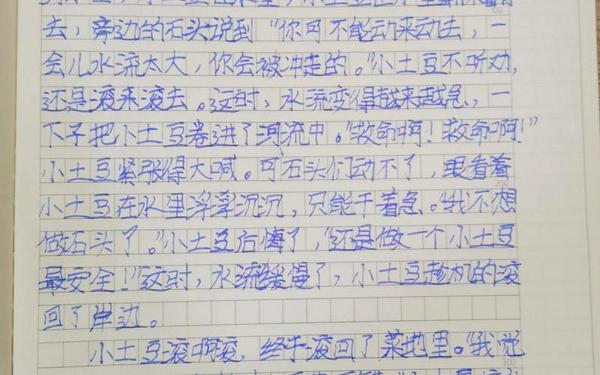 去，旁边的石头说到“你可不能动来动去，一
会儿水流太大，你会被冲走的。”小土豆不听劝，
还是滚来滚去。这时，水流变得越来越急，一
下子把小土豆卷进了河流中。“救命啊！救命啊！”
小土豆紧张得大喊。可石头们动不了，眼看着
小土豆在水里浮浮沉沉，只能干着急。“我不想
做石头了。”小土豆后悔了，“还是做一个小土豆
最安全！”这时，水流缓慢了，小土豆趁机的滚
回了岸边。
小土豆滚啊滚，终于滚回了菜地里。“我觉